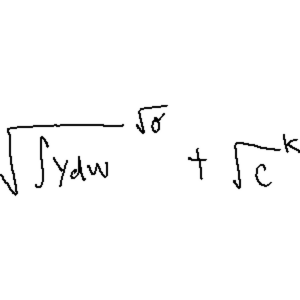 \sqrt{\int y dw}^{\sqrt{\sigma}} + \sqrt{c}^{k}